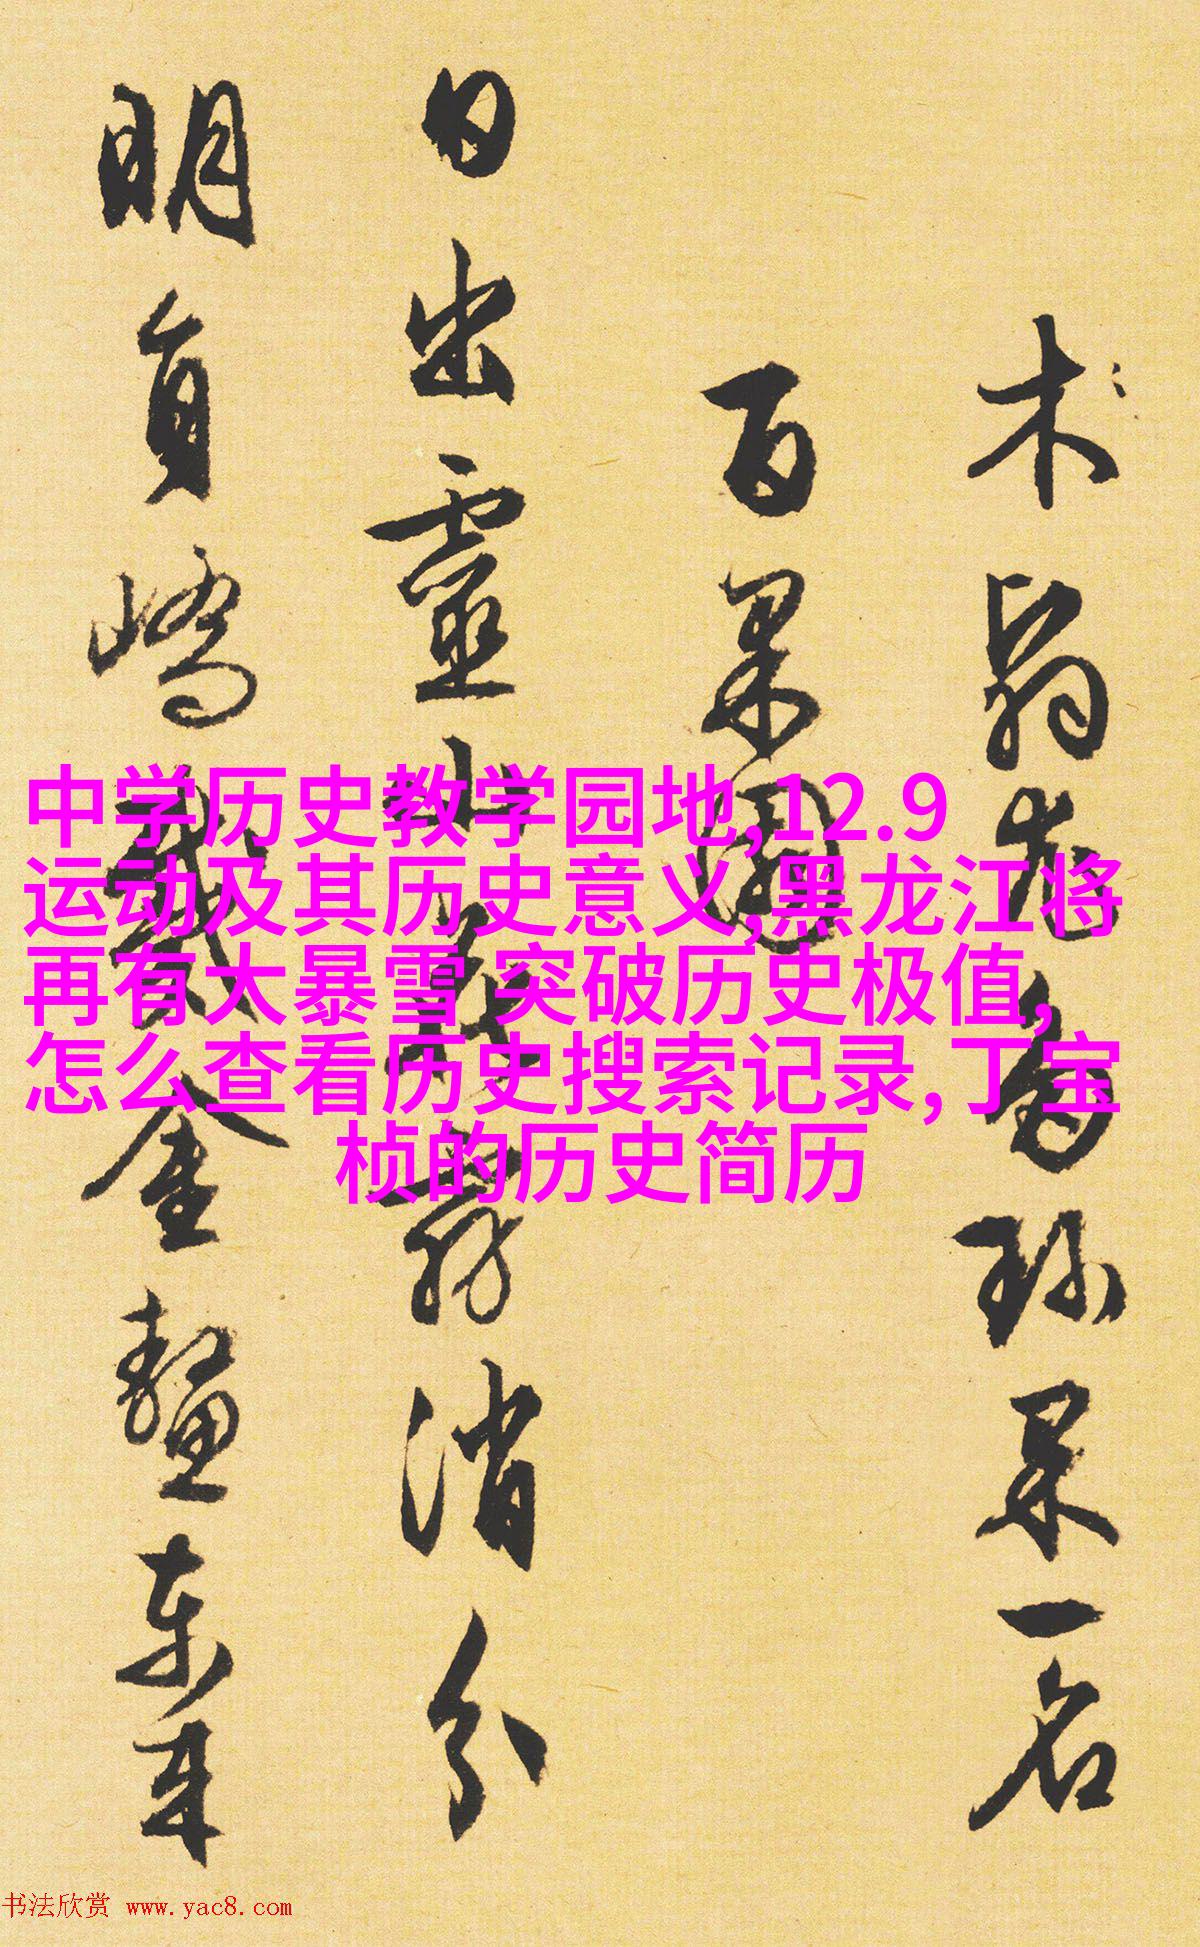 木弱枝高珍果一名
百果園
日出靈山發霧消分
明員嶠戴金鼇東來
中学历史教学园地,12.9
运动及其历史意义,黑龙江将
再有大暴雪 突破历史极值,
怎么查看历史搜索记录,丁宝
桢的历史简历
书法欣赏 www.yac8.com